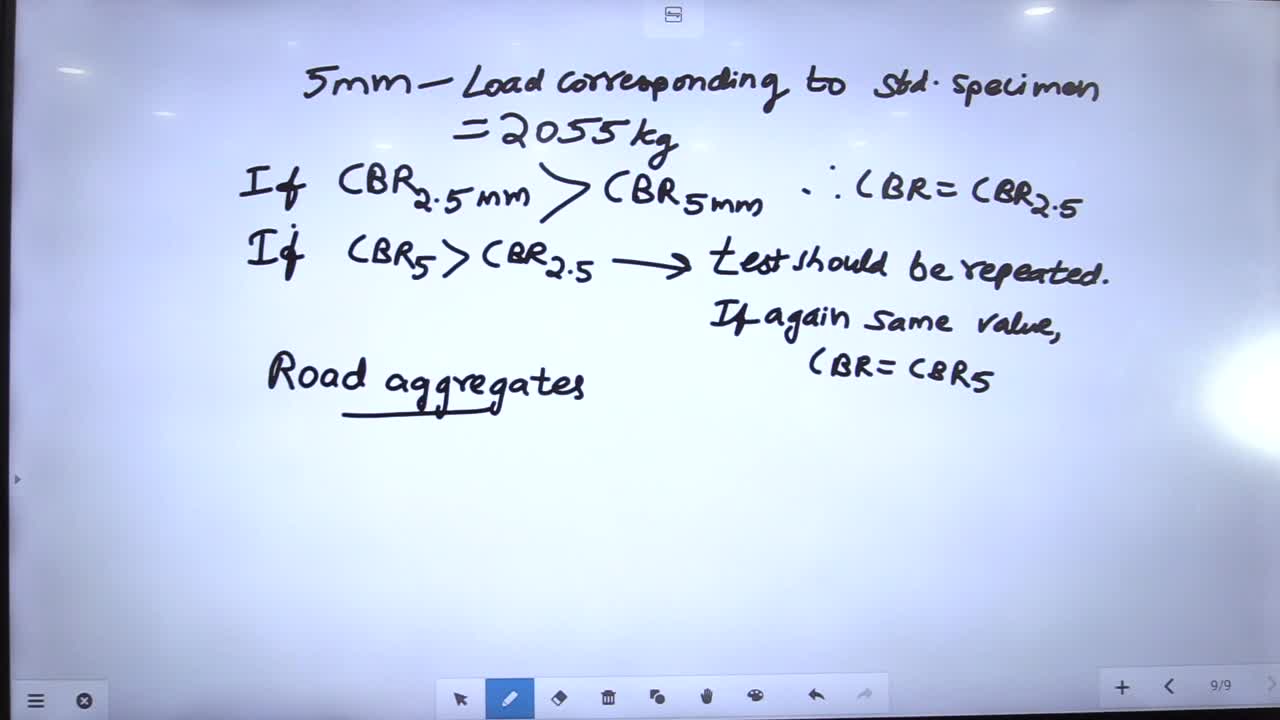 5mm – Load corresponding to std. specimen
= 2055 kg
If CBR2.5mm > CBR5mm ∴ CBR = CBR2.5
If CBR5 > CBR2.5 → test should be repeated.
If again same value,
CBR = CBR5
Road aggregates
9/9